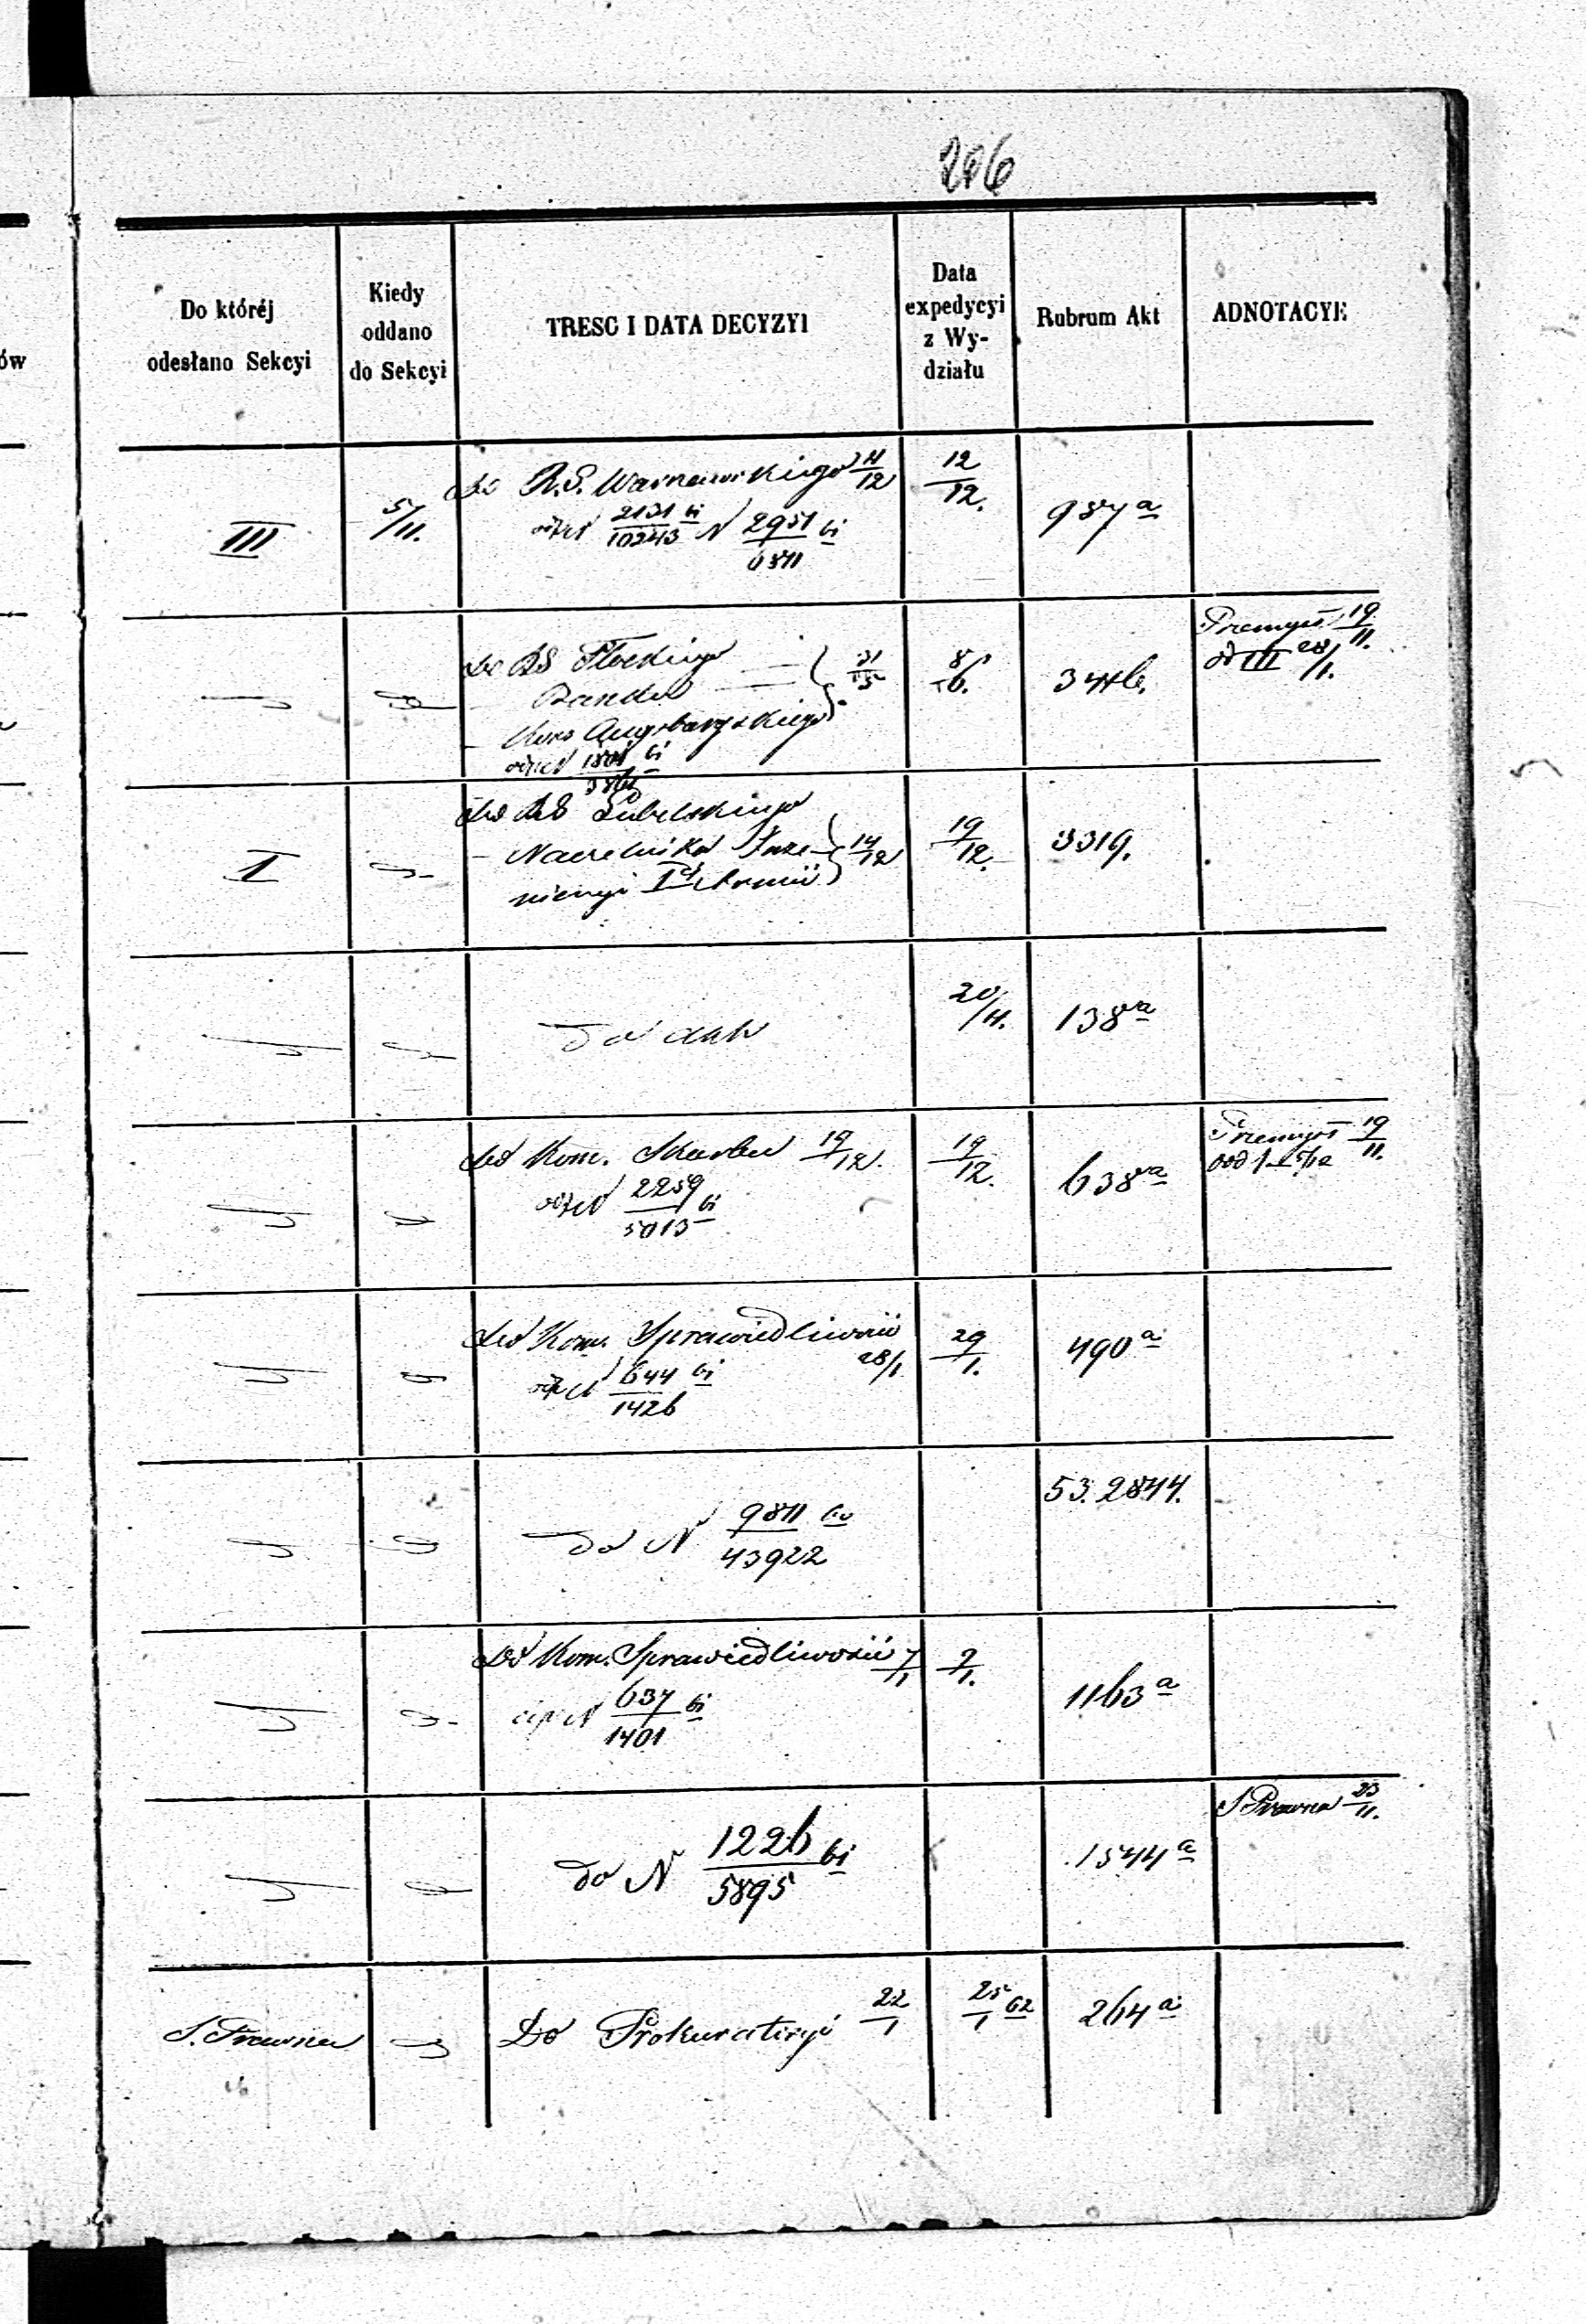 206
Do któréj
odesłano Sekcyi
Kiedy
oddano
do Sekcyi
TRESC I DATA DECYZYI
Data
expedycyi
z Wy-
działu
Rubrum Akt
ADNOTACYE
III
5/11.
Do R.G. Warszawskiego 11/12
2131/10243 N 2951/6811
12/12.
987 a
Do RG Płockiego
Banku
31/5
8/6.
344b.
Przemysł 19/11.
od III 28/1.
I
Do RG Lubelskiego
Naczelnika Inże-
nieryi I Armii
14/12
19/12.
3319.
do akt
20/11.
138 a
Do Kom. Skarbu 19/12.
2259/5013
19/12.
638 a
Przemysł 19/11.
Do Kom. Sprawiedliwości
28/1
644/1426
29/1.
490 a
do N 9811/43922
53. 2844.
Do Kom. Sprawiedliwości 7/1
637/1401
9/1.
1163 a
do N 1226/5895
1544 a
S. Prawna 23/11.
S. Prawna
Do Prokuratoryi 22/1
25/1 62
264 a